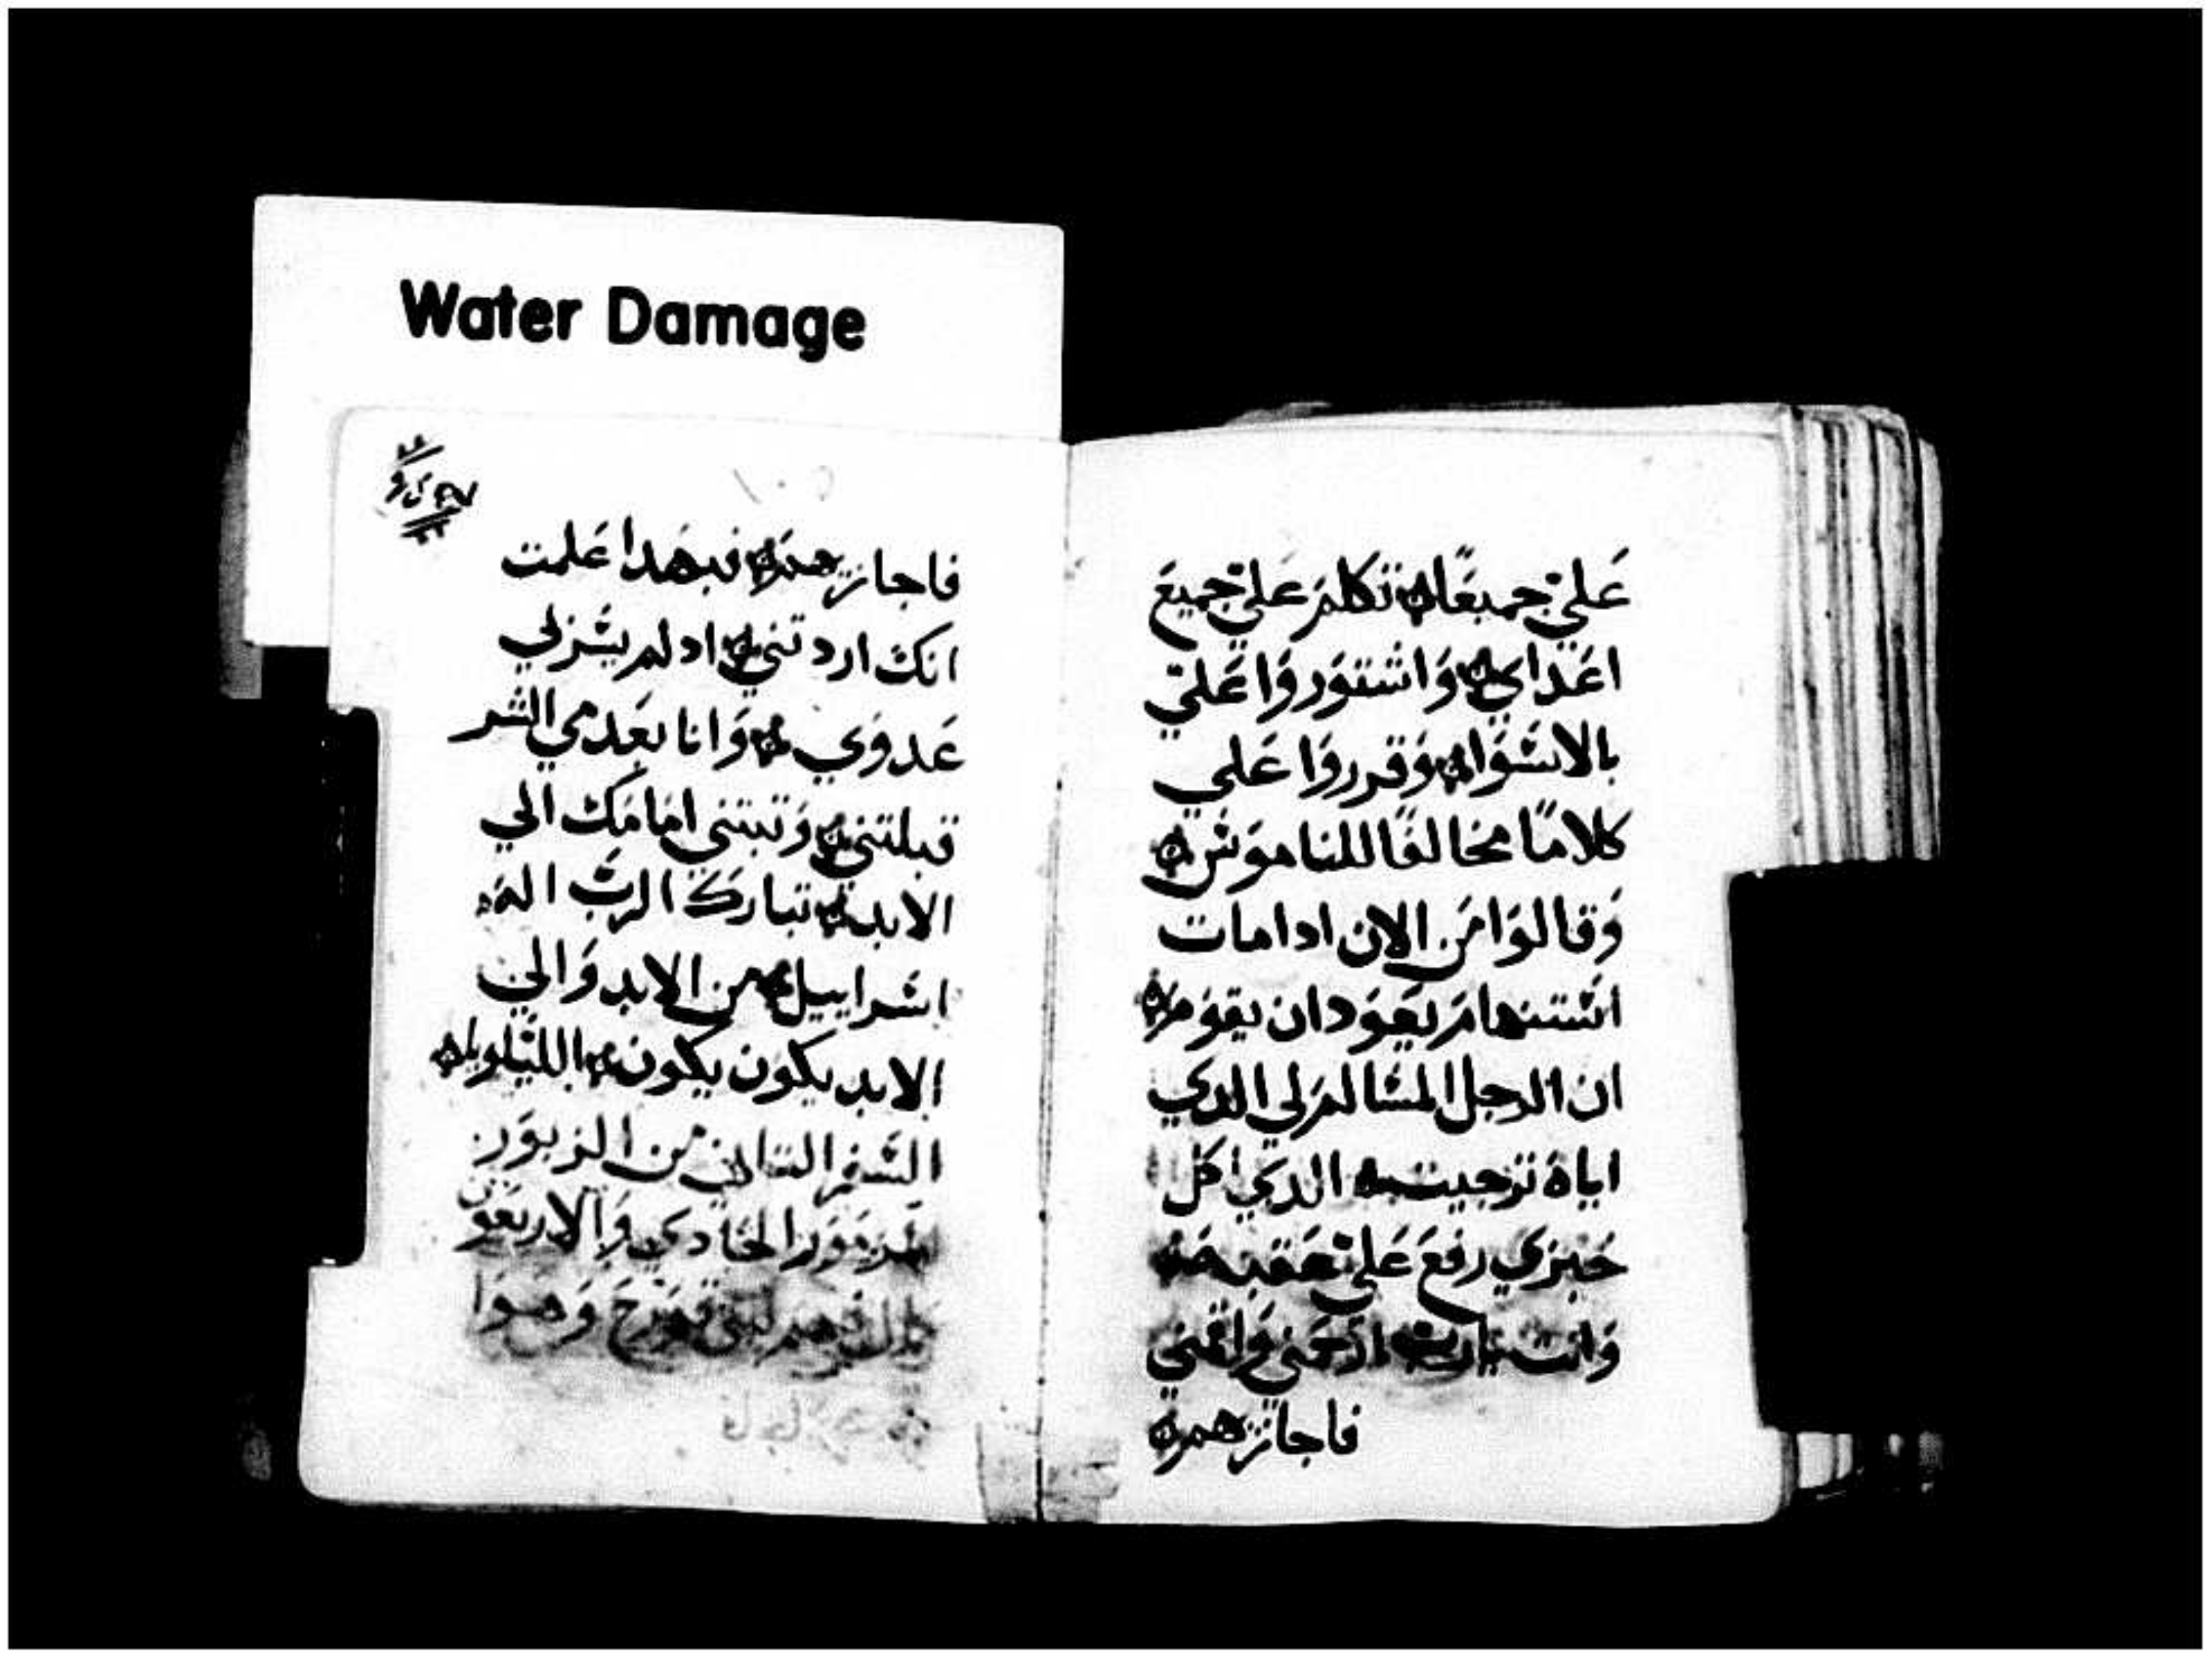 Water Damage
عَليَّ جميعًا تكلمَ عَليَّ جميعَ
اعَداي وَاشتوَروَا عَليَّ
بالاسْوَا وَقرروَا عَلي
كلامًا مخالفًا للناموَس
وَقالوَا مَن الان ادامات
اسْتنهامَ يعَوَدان يقوَم
ان الرجل المسْالمَ لي الدي
اياة ترجيت الدَي اكل
خبزَي رفعَ عَليَّ عَقبه
وَانت يارب ارحَمني وَاقمني
فاجازهم
فاجازهم فبهَدا عَلمت
انك اردتني ادلم يسْرلي
عَدوَي وَانا بعَدمي الشر
قبلتني وَتبتني امَامَك الي
الابد تبارَك الربّ الهَ
اسْراييل من الابد وَالي
الابد يكوَن يكوَن الليلويا
السْفر التاني مَن الزبوَر
المزموَر الحَادي وَالاربعَوَن